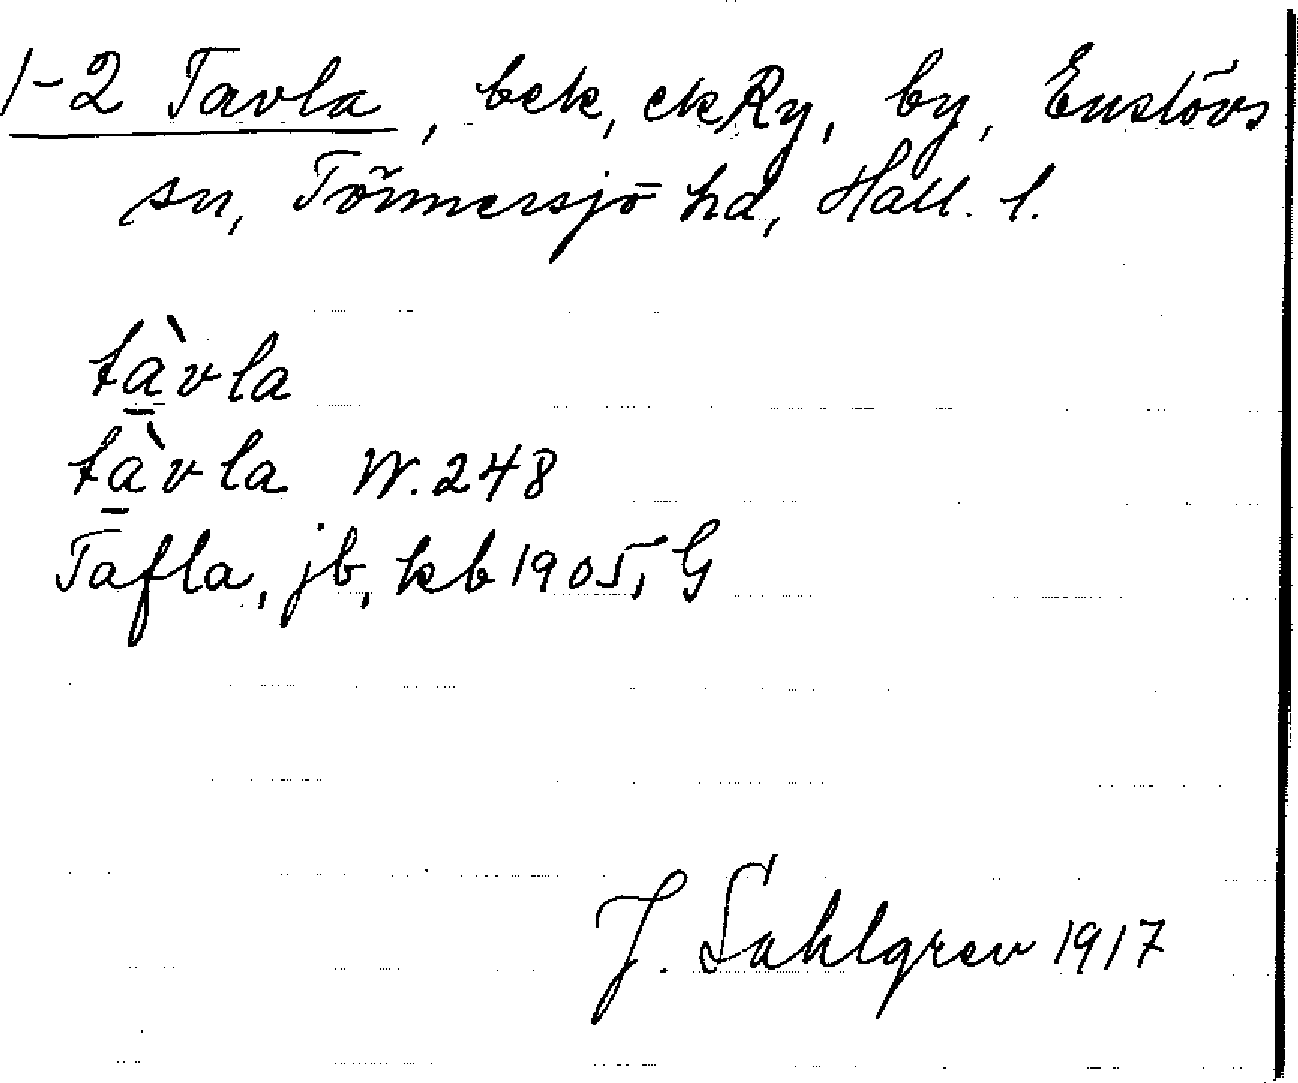 1-2 Tavla, bek, ckRy, by, Enslövs
sn, Tönnersjö hd, Hall. l.
tàvla
tàvla W.248
Tafla, jb, kb 1905, G
J. Sahlgren 1917